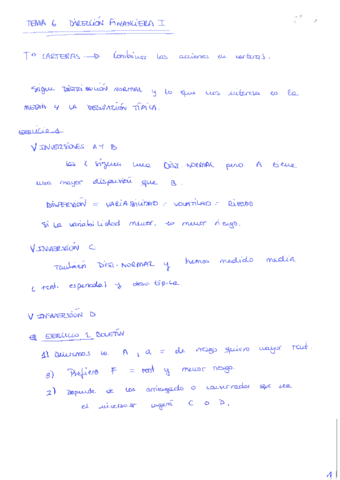 TEMA 6 DIRECCIÓN FINANCIERA I
Tª CARTERAS → Combinar las acciones en carteras.
Sigue DISTRIBUCIÓN NORMAL y lo que nos interesa es la
MEDIA Y LA DESVIACIÓN TÍPICA.
EJERCICIO 1
V INVERSIONES A Y B
las 2 siguen una DIST NORMAL pero A tiene
una mayor dispersión que B.
DISPERSIÓN = VARIABILIDAD = VOLATILIDAD = RIESGO
Si LA variabilidad menor, menor riesgo.
V INVERSIÓN C
También DIST. NORMAL y hemos medido media
(rent. esperada) y desv típica
V INVERSIÓN D
EJERCICIO 1 BOLETÍN
1) A, a = de riesgo quiero mayor rent.
3) Prefiero F = rent y menor riesgo.
2) Depende de los arriesgado o conservador que sea
el inversor C o D.
1